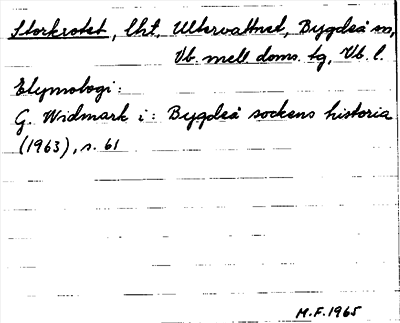 Storkrotet, lht, Ultervattnet, Bygdeå sn,
Vb. mell doms. tg, Vb. l.
Etymologi:
G. Widmark i: Bygdeå sockens historia
(1963), s. 61
M.F. 1965